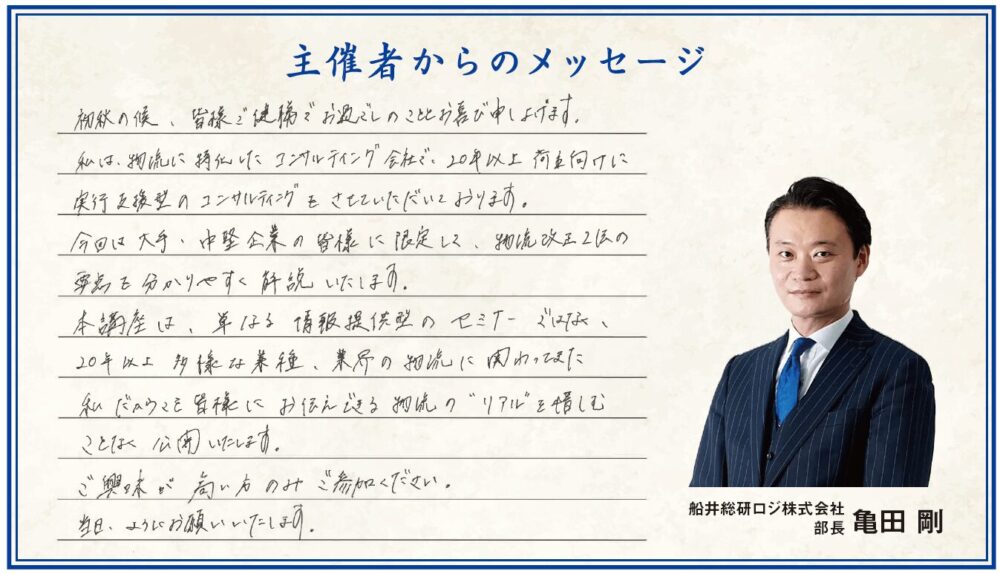 主催者からのメッセージ
初秋の候、皆様ご健勝でお過ごしのこととお喜び申し上げます。
私は、物流に特化したコンサルティング会社で、20年以上荷主向けに
実行支援型のコンサルティングをさせていただいております。
今回は大手・中堅企業の皆様に限定して、物流改正2法の
要点を分かりやすく解説いたします。
本講座は、単なる情報提供型のセミナーではなく、
20年以上多様な業種、業界の物流に関わってきた
私だからこそ皆様にお伝えできる物流の"リアル"を惜しむ
ことなく公開いたします。
ご興味が高い方のみご参加ください。
当日、よろしくお願いいたします。
船井総研ロジ株式会社
部長 亀田 剛